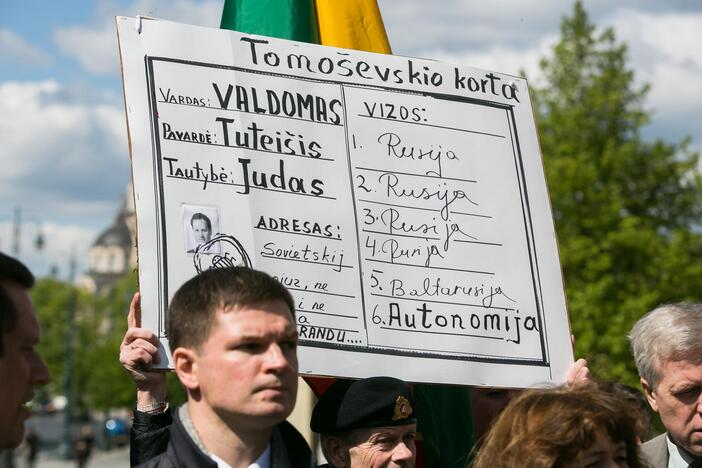 Tomoševskio korta
VARDAS: VALDOMAS
PAVARDĖ: TUTEIŠIS
TAUTYBĖ: JUDAS
ADRESAS:
Sovietskij
ne
i ne
VIZOS:
1. Rusija
2. Rusija
3. Rusija
4. Rusija
5. Baltarusija
6. AUTONOMIJA